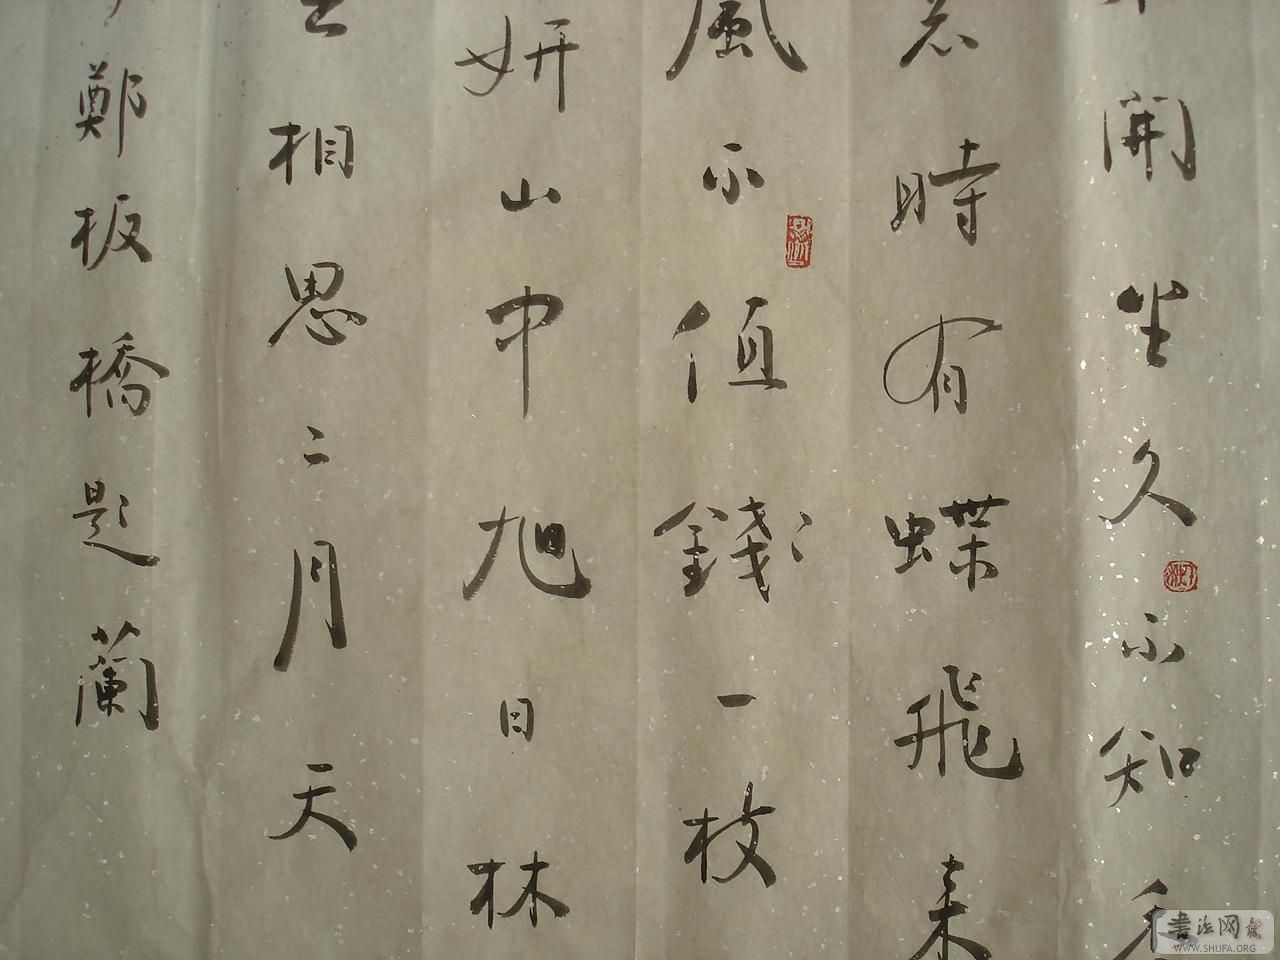 開坐久不知
時有蝶飛来
風不值錢一枝
妍山中旭日林
相思二月天
鄭板橋題蘭
書法网
WWW.SHUFA.ORG